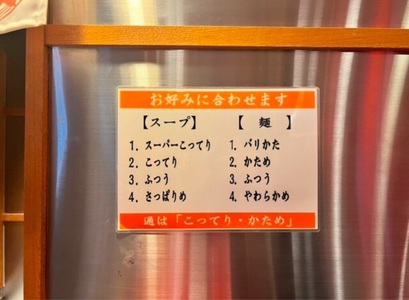 お好みに合わせます
【スープ】 【 麺 】
1. スーパーこってり 1. バリかた
2. こってり 2. かため
3. ふつう 3. ふつう
4. さっぱりめ 4. やわらかめ
通は「こってり・かため」